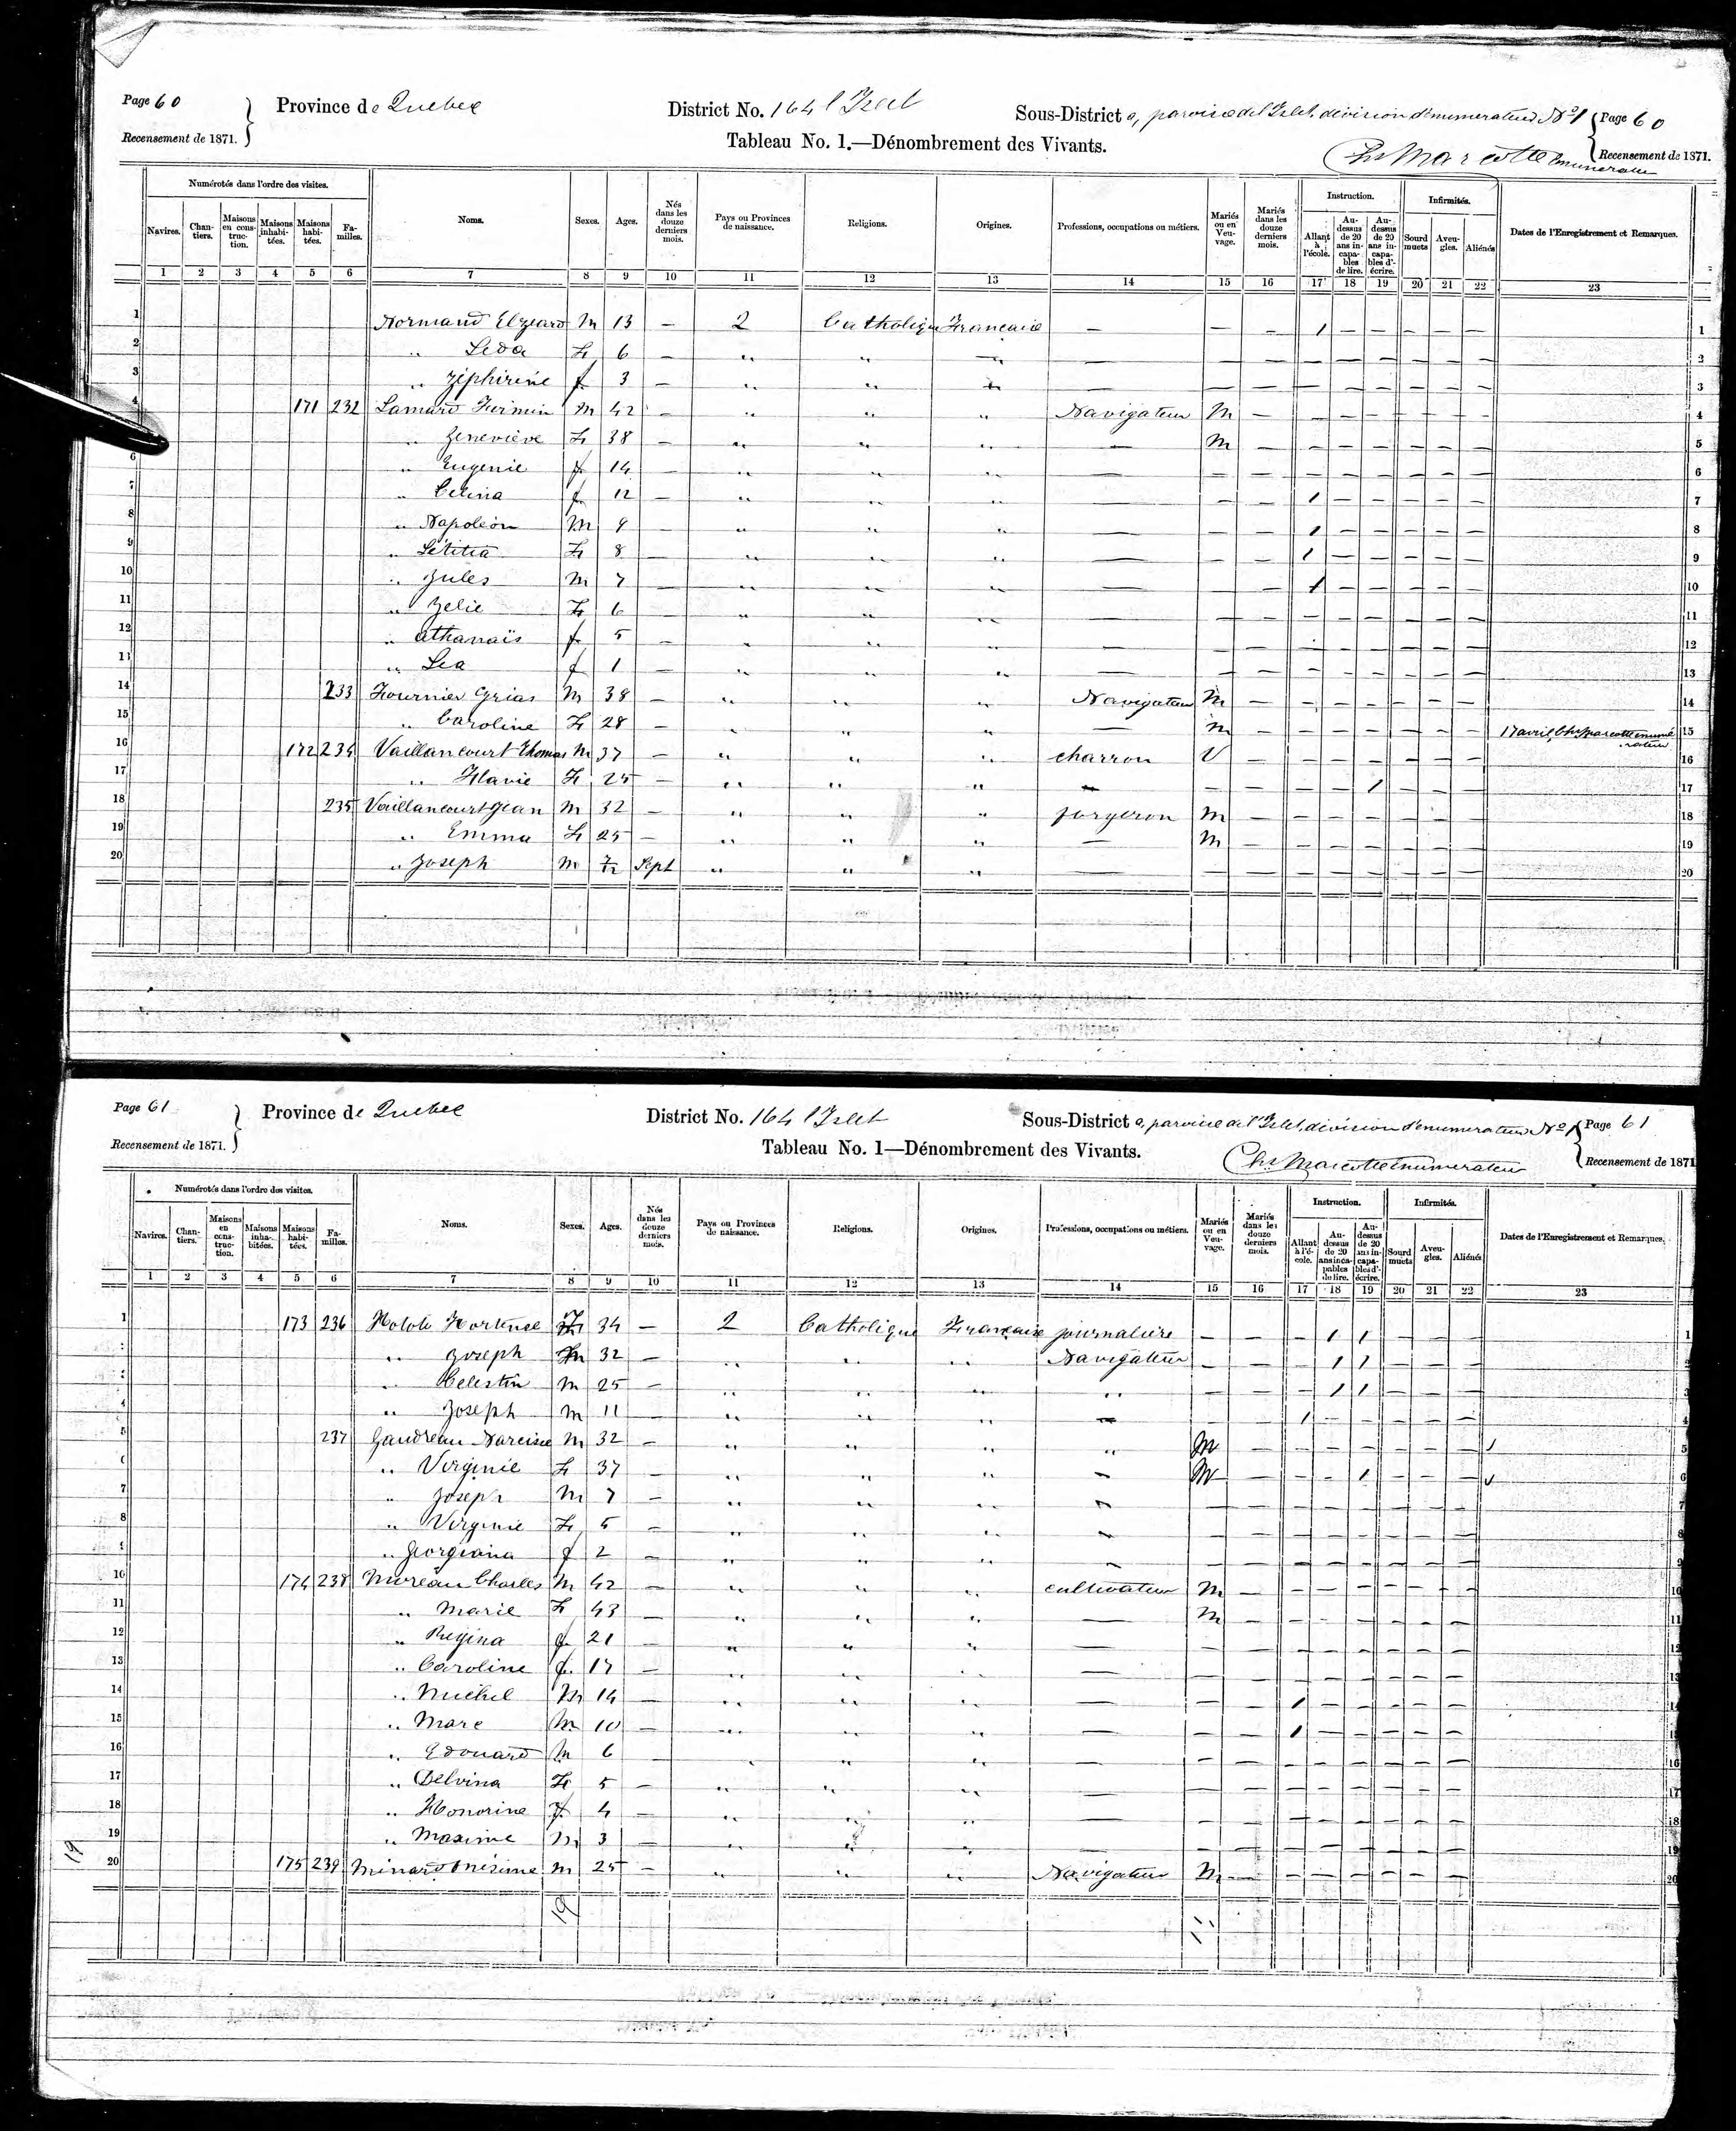 Page 60 Province de Quebec District No. 164 l'Islet Sous-District a, paroisse de l'Islet, division d'énumérateur No 1 Page 60
Recensement de 1871. Tableau No. 1.—Dénombrement des Vivants. Chs Marcotte Enumerateur Recensement de 1871.
Numérotés dans l'ordre des visites. Noms. Sexes. Ages. Nés dans les douze derniers mois. Pays ou Provinces de naissance. Religions. Origines. Professions, occupations ou métiers. Mariés ou en Veuvage. Mariés dans les douze derniers mois. Instruction. Infirmités. Dates de l'Enregistrement et Remarques.
Navires. Chantiers. Maisons en construction. Maisons inhabitées. Maisons habitées. Familles. Allant à l'école. Au-dessus de 20 ans incapables de lire. Au-dessus de 20 ans incapables d'écrire. Sourd muets Aveugles. Aliénés
1 2 3 4 5 6 7 8 9 10 11 12 13 14 15 16 17 18 19 20 21 22 23
1 Normand Elzeard M 13 — 2 Catholique Francaise — — — 1 — — — — — 1
2 " Leda F 6 — " " " — — — — — — — — — 2
3 " Zéphirine f 3 — " " " — — — — — — — — — 3
4 171 232 Lamard Firmin M 42 — " " " Navigateur M — — — — — — — 4
" Geneviève F 38 — " " " — M — — — — — — — 5
6 " Eugenie f 14 — " " " — — — — — — — — — 6
7 " Celina f 12 — " " " — — — 1 — — — — — 7
8 " Napoléon M 9 — " " " — — — 1 — — — — — 8
9 " Létitia F 8 — " " " — — — 1 — — — — — 9
10 " Jules M 7 — " " " — — — 1 — — — — — 10
11 " Zelie F 6 — " " " — — — — — — — — — 11
12 " Athanaïs f 5 — " " " — — — — — — — — — 12
13 " Lea f 1 — " " " — — — — — — — — — 13
14 233 Fournier Grias M 38 — " " " Navigateur M — — — — — — — 14
15 " Caroline F 28 — " " " — M — — — — — — — 17 avril Chs Marcotte enumérateur 15
16 172 234 Vaillancourt Thomas M 37 — " " " charron V — — — — — — — 16
17 " Flavie F 25 — " " " — — — — — 1 — — — 17
18 235 Vaillancourt Jean M 32 — " " " forgeron M — — — — — — — 18
19 " Emma F 25 — " " " — M — — — — — — — 19
20 " Joseph M 7/12 Sept " " " — — — — — — — — — 20
Page 61 Province de Quebec District No. 164 l'Islet Sous-District a, paroisse de l'Islet, division d'énumerateur No 1 Page 61
Recensement de 1871. Tableau No. 1—Dénombrement des Vivants. Chs Marcotte Enumerateur Recensement de 1871
Numérotés dans l'ordre des visites. Noms. Sexes. Ages. Nés dans les douze derniers mois. Pays ou Provinces de naissance. Religions. Origines. Professions, occupations ou métiers. Mariés ou en Veuvage. Mariés dans les douze derniers mois. Instruction. Infirmités. Dates de l'Enregistrement et Remarques.
Navires. Chantiers. Maisons en construction. Maisons inhabitées. Maisons habitées. Familles. Allant à l'école. Au-dessus de 20 ans incapables de lire. Au-dessus de 20 ans incapables d'écrire. Sourd muets Aveugles. Aliénés
1 2 3 4 5 6 7 8 9 10 11 12 13 14 15 16 17 18 19 20 21 22 23
1 173 236 Hortense F 34 — 2 Catholique Francaise journalière — — — 1 1 — — — 1
" Joseph M 32 — " " " Navigateur — — — 1 1 — — — 2
" Celestin M 25 — " " " " — — — 1 1 — — — 3
4 " Joseph M 11 — " " " — — — 1 — — — — — 4
5 237 Gaudreau Narcisse M 32 — " " " " M — — — — — — — 5
6 " Virginie F 37 — " " " — M — — — 1 — — — 6
7 " Joseph M 7 — " " " — — — — — — — — — 7
8 " Virginie F 5 — " " " — — — — — — — — — 8
" Georgiana f 2 — " " " — — — — — — — — — 9
10 174 238 Moreau Charles M 42 — " " " cultivateur M — — — — — — — 10
11 " Marie F 43 — " " " — M — — — — — — — 11
12 " Regina f 21 — " " " — — — — — — — — — 12
13 " Caroline f 17 — " " " — — — — — — — — — 13
14 " Michel M 14 — " " " — — — 1 — — — — — 14
15 " Marc M 10 — " " " — — — 1 — — — — — 15
16 " Edouard M 6 " " " — — — — — — — — — 16
17 " Delvina F 5 — " " " — — — — — — — — — 17
18 " Honorine f 4 — " " " — — — — — — — — — 18
19 " Maxime M 3 — " " " — — — — — — — — — 19
19
20 175 239 Minard Onésime M 25 — " " " Navigateur M — — — — — — — 20
19